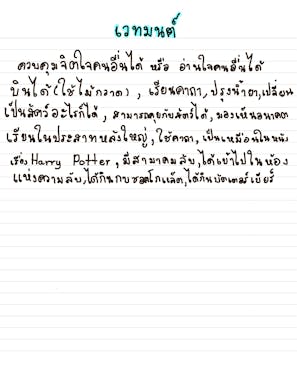 เวทมนต์
ควบคุมจิตใจคนอื่นได้ หรือ อ่านใจคนอื่นได้
บินได้ (ใช้ไม้กวาด) , เรียนคาถา, ปรุงน้ำยา, เปลี่ยน
เป็นสัตว์อะไรก็ได้ , สามารถคุยกับสัตว์ได้ , มองเห็นอนาคต
เรียนในปราสาทหลังใหญ่, ใช้คาถา, เป็นเหมือนในหนัง
เรื่อง Harry Potter , มีสามาคมลับ, ได้เข้าไปในห้อง
แห่งความลับ, ได้กินกบชอคโกแล็ต, ได้กินบัตเตอร์เบียร์